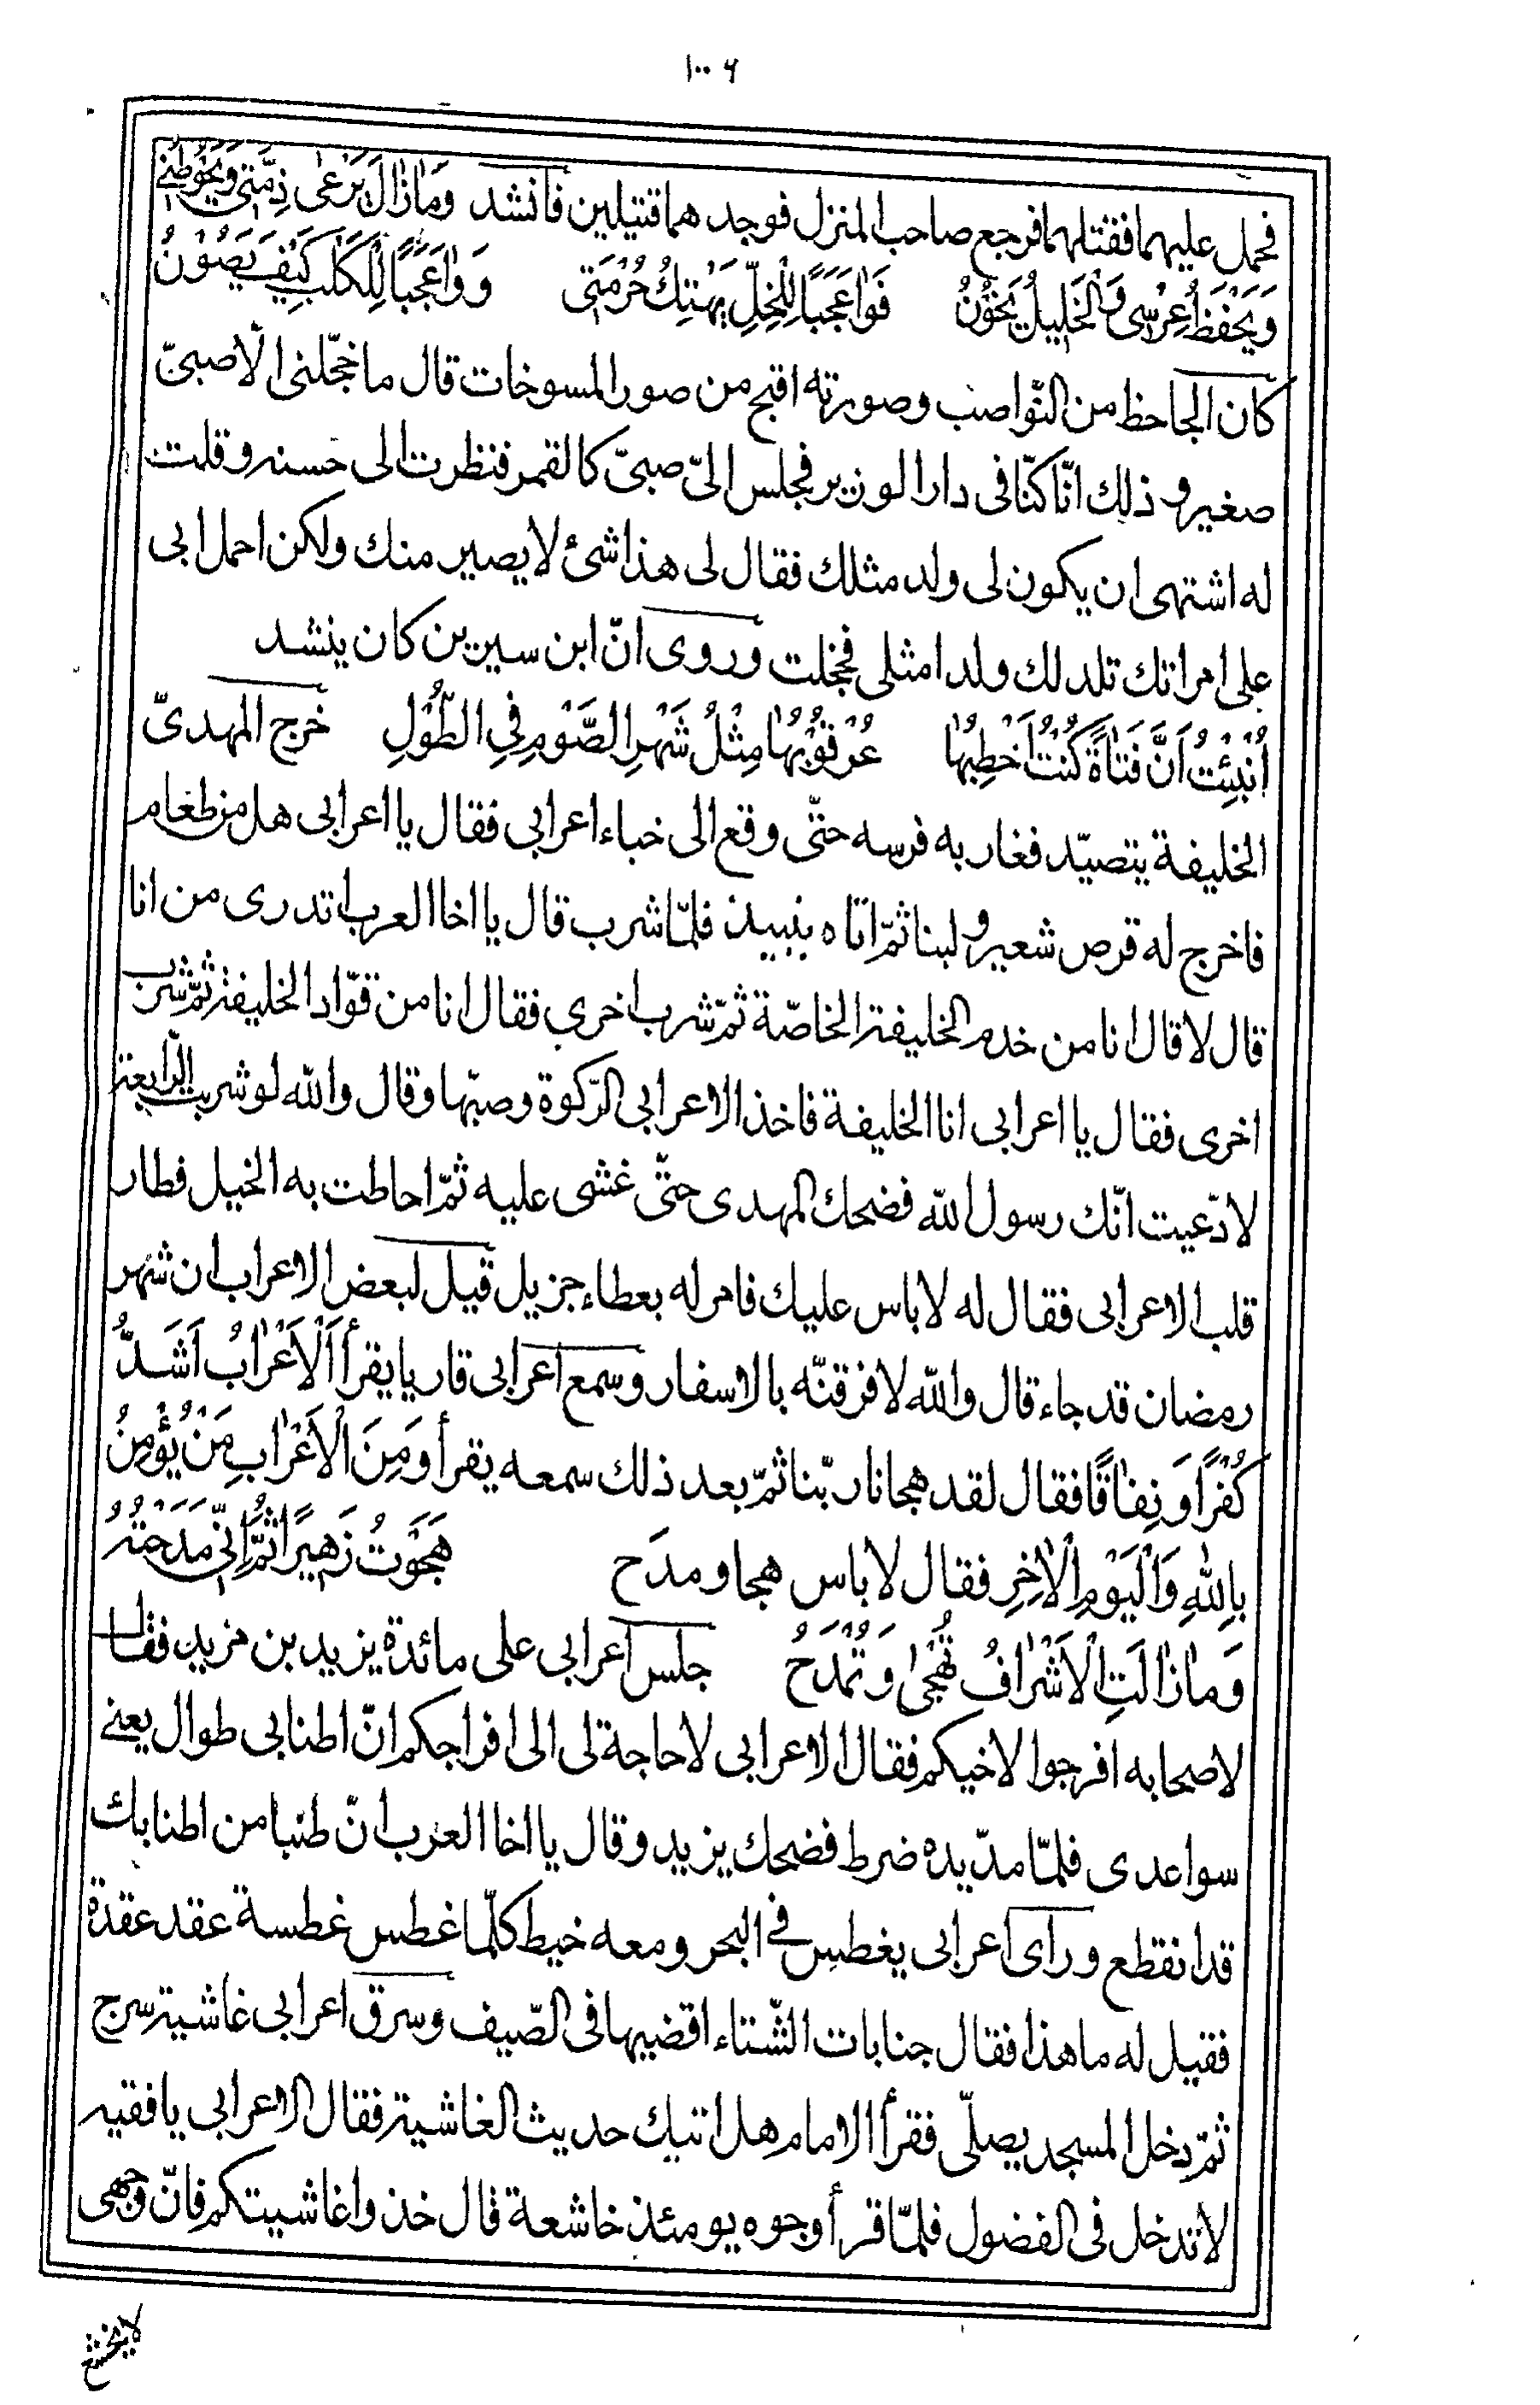 ١٠٠٦
فحمل عليهما فقتلهما فرجع صاحب المنزل فوجدهما قتيلين فانشد وَمٰازٰالَ يَرْعىٰ ذِمَّتي وَيَحُوطُني
وَيَحْفَظُ عِرْسي وَالْخَليلُ يَخُونُ فَوٰاعَجَبًا لِلْخِلِّ يَهْتِكُ حُرْمَتي وَوٰاعَجَبًا لِلْكَلْبِ كَيْفَ يَصُونُ
كان الجاحظ من النّواصب وصورته اقبح من صور المسوخات قال ما خجّلنى الّا صبىّ
صغير و ذلك انّا كنّا فى دار الوزير فجلس الىّ صبىّ كالقمر فنظرت الى حسنه و قلت
له اشتهى ان يكون لى ولد مثلك فقال لى هذا شئ لا يصير منك ولكن احمل ابى
على امراتك تلد لك ولدا مثلى فخجلت وروى انّ ابن سيرين كان ينشد
اُنْبِئْتُ اَنَّ فَتٰاةً كُنْتُ اَخْطِبُهٰا عُرْقُوبُهٰا مِثْلُ شَهْرِ الصَّوْمِ فِي الطُّولِ خرج المهدىّ
الخليفة يتصيّد فغار به فرسه حتّى وقع الى خباء اعرابى فقال يا اعرابى هل من طعام
فاخرج له قرص شعير و لبنا ثمّ اتاه بنبيذ فلمّا شرب قال يا اخا العرب اتدرى من انا
قال لا قال انا من خدم الخليفة الخاصّة ثمّ شرب اخرى فقال انا من قوّاد الخليفة ثمّ شرب
اخرى فقال يا اعرابى انا الخليفة فاخذ الاعرابى الرّكوة وصبّها وقال والله لو شربت الرّابعة
لادّعيت انّك رسول الله فضحك المهدى حتّى غشى عليه ثمّ احاطت به الخيل فطار
قلب الاعرابى فقال له لا باس عليك فامر له بعطاء جزيل قيل لبعض الاعراب ان شهر
رمضان قد جاء قال والله لافرقنّه بالاسفار وسمع اعرابى قاريا يقرأ اَلْاَعْرٰابُ اَشَدُّ
كُفْرًا وَ نِفٰاقًا فقال لقد هجانا ربّنا ثمّ بعد ذلك سمعه يقرأ وَمِنَ الْاَعْرٰابِ مَنْ يُؤْمِنُ
بِاللهِ وَالْيَوْمِ الْاٰخِرِ فقال لا باس هجا و مدَح هَجَوْتُ زُهَيْرًا ثُمَّ اِنّي مَدَحْتُهُ
وَمٰازٰالَتِ الْاَشْرٰافُ تُهْجىٰ وَ تُمْدَحُ جلس اعرابى على مائدة يزيد بن مزيد فقال
لاصحابه افرجوا لاخيكم فقال الاعرابى لا حاجة لى الى افراجكم انّ اطنابى طوال يعنے
سواعدى فلمّا مدّ يده ضرط فضحك يزيد وقال يا اخا العرب انّ طنبا من اطنابك
قد انقطع و راى اعرابى يغطس في البحر و معه خيط كلّما غطس غطسة عقد عقدة
فقيل له ما هذا فقال جنابات الشّتاء اقضيها فى الصّيف و سرق اعرابى غاشية سرج
ثمّ دخل المسجد يصلّى فقرأ الامام هل اتيك حديث الغاشية فقال الاعرابى يا فقيه
لا تدخل فى الفضول فلمّا قرأ وجوه يومئذ خاشعة قال خذوا غاشيتكم فانّ وجهى
لا يخشع